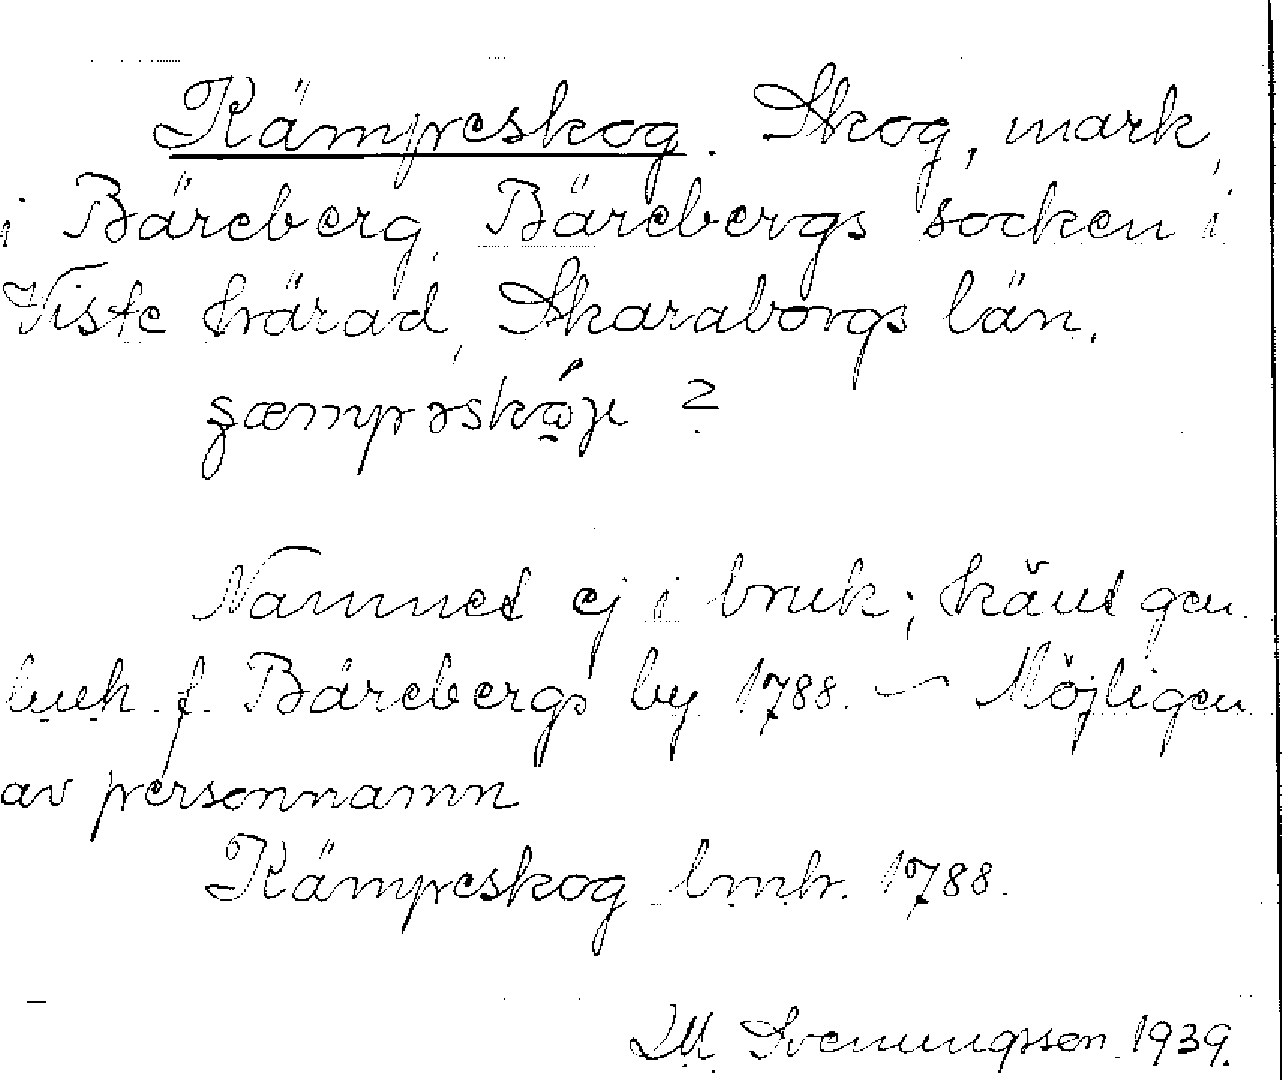 Kämpeskog. Skog, mark,
i Bäreberg, Bärebergs socken i
Viste härad, Skaraborgs län.
Namnet ej i bruk; känt gen.
lmh. f. Bärebergs by 1788. — Möjligen
av personnamn
Kämpeskog lmh. 1788.
Svenungsson 1939.